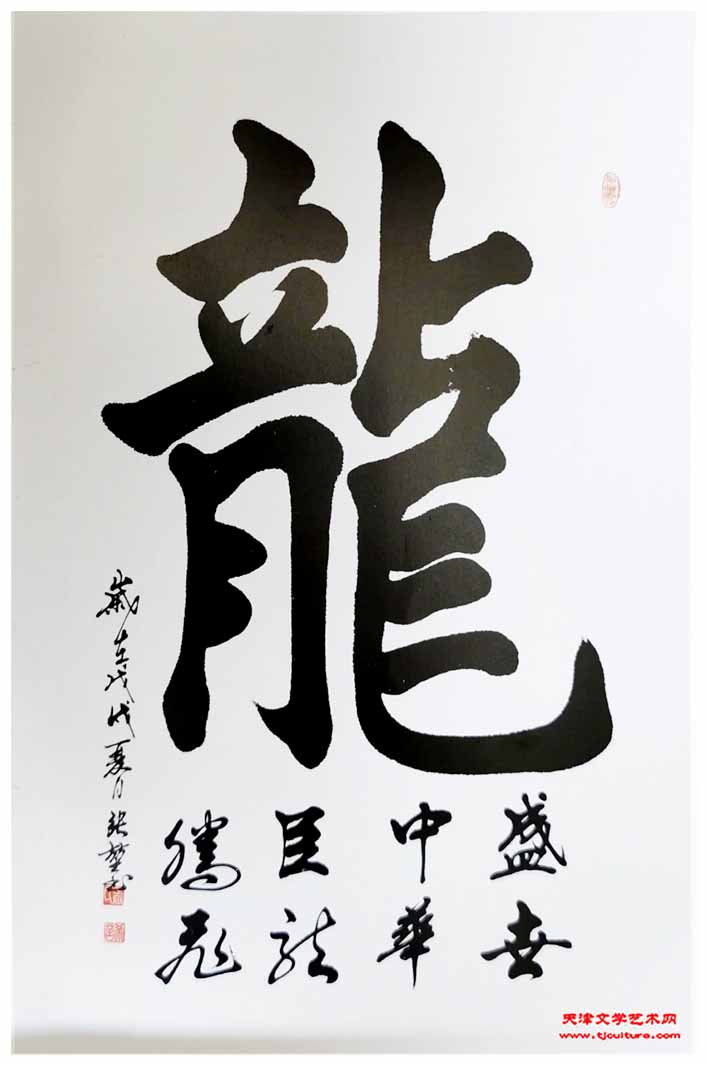 龍
盛世
中華
巨龍
騰飛
歲在戊戌夏日張堃書
天津文学艺术网
www.tjculture.com